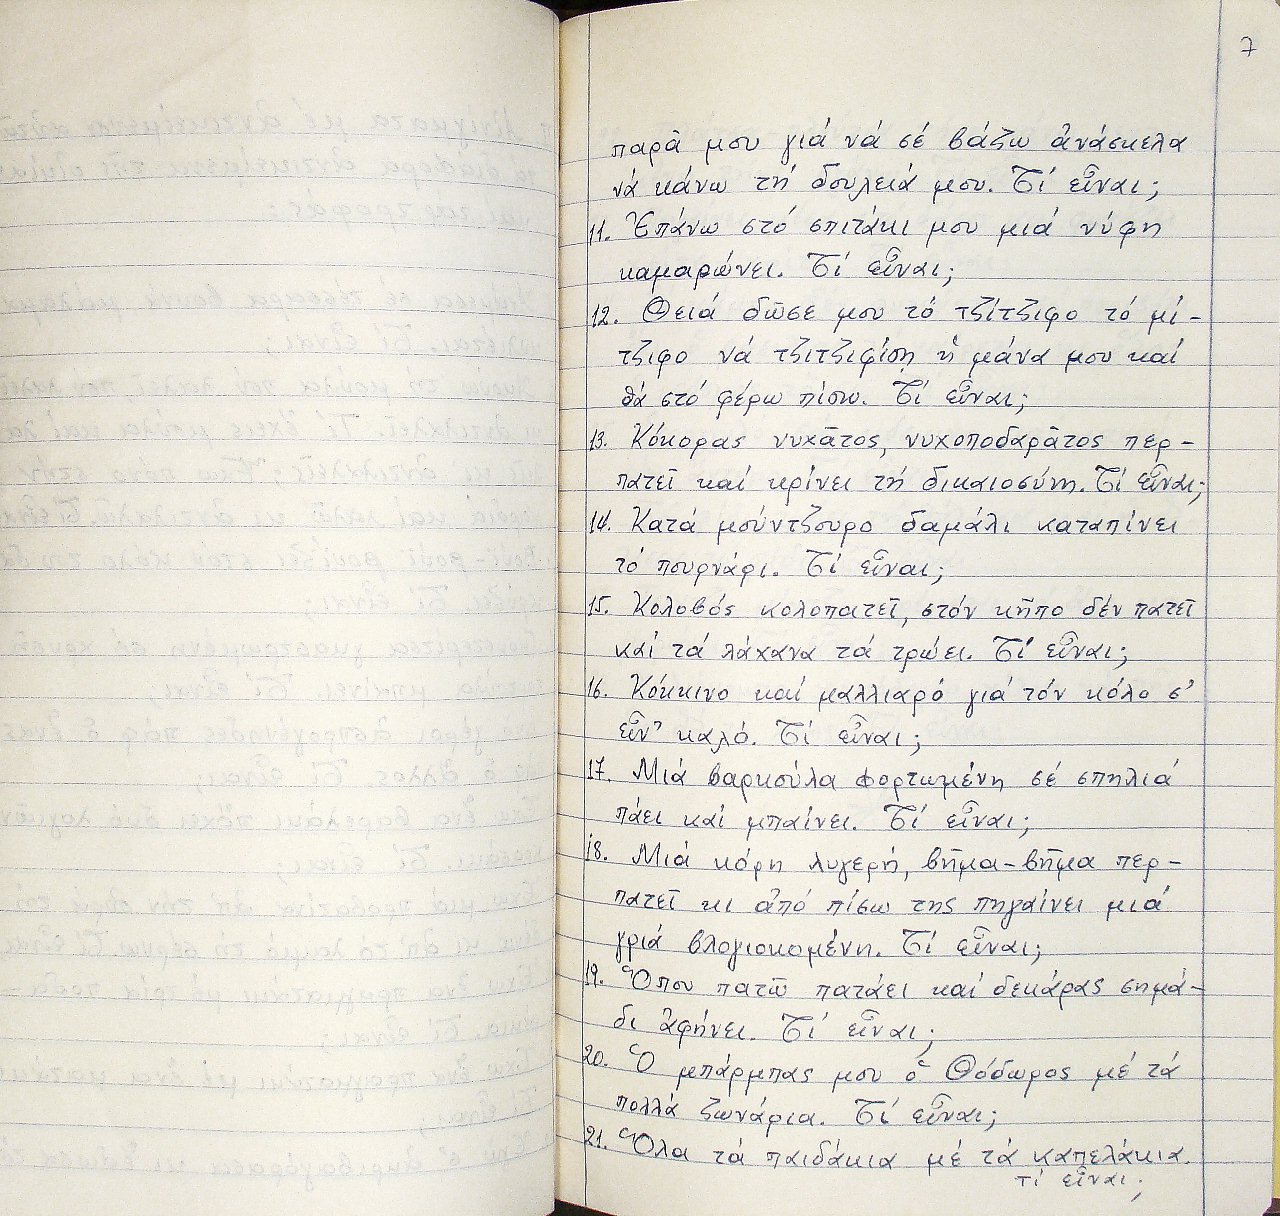 7
παρᾶ μου γιά νά σέ βάζω ἀνάσκελα
νά κάνω τή δουλειά μου. Τί εἶναι;
11. Ἐπάνω στό σπιτάκι μου μιά νύφη
καμαρώνει. Τί εἶναι;
12. Θειά δῶσε μου τό τζίτζιφο τό μί-
τζιφο νά τζιτζιφίσῃ ἡ μάνα μου καί
θά στό φέρω πίσω. Τί εἶναι;
13. Κόκορας νυχᾶτος, νυχοποδαρᾶτος περ-
πατεῖ καί κρίνει τή δικαιοσύνη. Τί εἶναι;
14. Κατά μούντζουρο δαμάλι καταπίνει
τό πουρνάρι. Τί εἶναι;
15. Κολοβός κολοπατεῖ, στόν κῆπο δέν πατεῖ
καί τά λάχανα τά τρώει. Τί εἶναι;
16. Κόκκινο καί μαλλιαρό γιά τόν κόλο σ'
εἶν' καλό. Τί εἶναι;
17. Μιά βαρκούλα φορτωμένη σέ σπηλιά
πάει καί μπαίνει. Τί εἶναι;
18. Μιά κόρη λυγερή, βῆμα-βῆμα περ-
πατεῖ κι ἀπό πίσω της πηγαίνει μιά
γριά βλογιοκομένη. Τί εἶναι;
19. Ὅπου πατῶ πατάει καί δεκάρας σημά-
δι ἀφήνει. Τί εἶναι;
20. Ὁ μπάρμπας μου ὁ Θόδωρος μέ τά
πολλά ζωνάρια. Τί εἶναι;
21. Ὅλα τά παιδάκια μέ τά καπελάκια.
τί εἶναι;